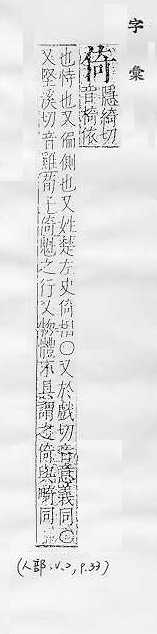 字彙
倚
隱綺切
音椅依
也恃也又偏側也又姓楚左史倚相○又於戲切音意義同○
又堅溪切音雞荀子倚魁之行又物體不具謂之倚與畸同
(人部.V.2, P.33)